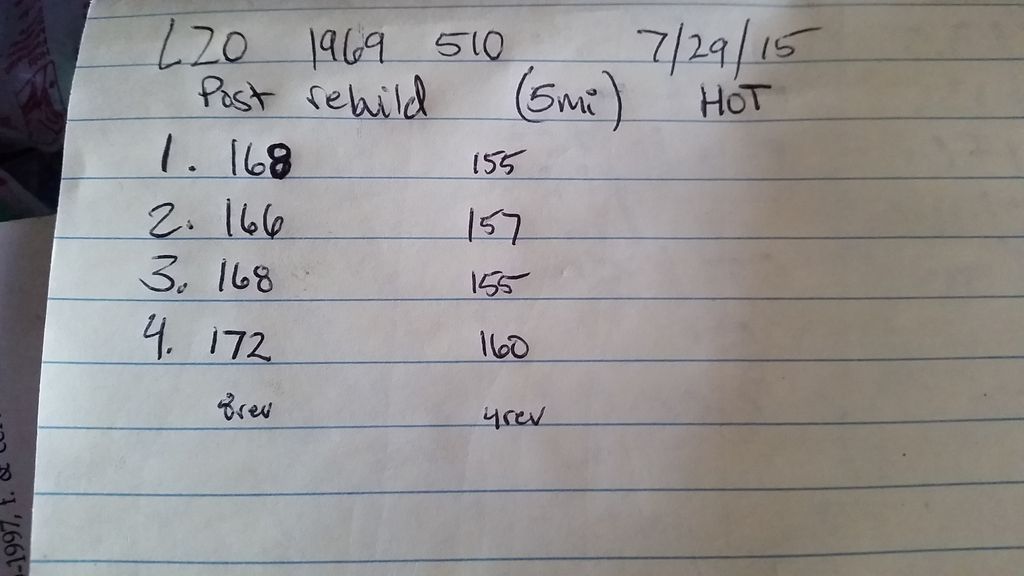 L20 1969 510 7/29/15
Post rebuild (5mi) HOT
1. 168 155
2. 166 157
3. 168 155
4. 172 160
8rev 4rev
-1997,